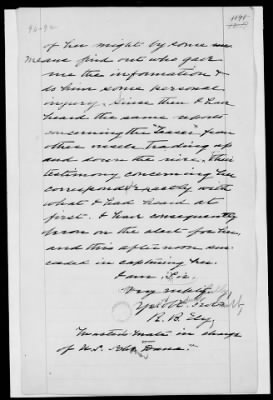 1191
of her might by some
means find out who gave
me the information &
do him some personal
injury. Since then I have
heard the same reports
concerning the "Laura" from
other vessels trading up
and down the river, their
testimony concerning her
corresponded exactly with
what I had heard at
first. I have consequently
been on the alert for her,
and this afternoon suc-
ceeded in capturing her.
I am Sir,
Very respty,
Yr obt Servt
R. B. Ely
Masters Mate in charge
of U.S. Schr